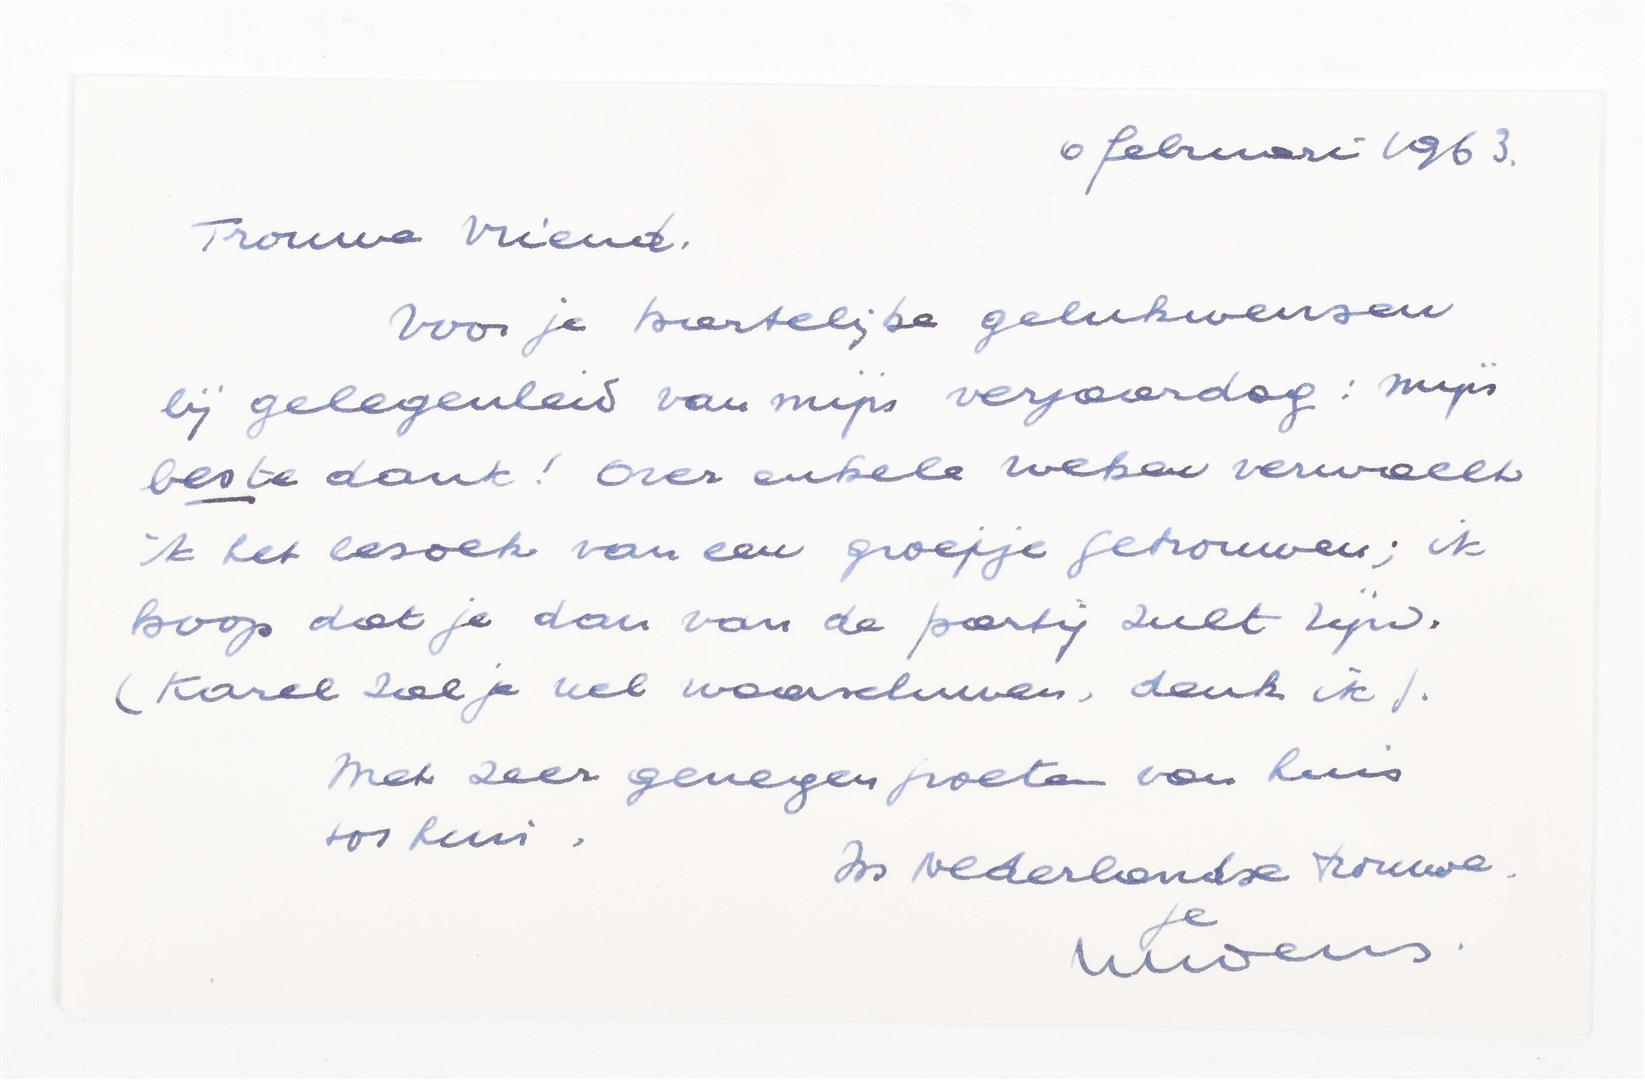 6 februari 1963.
Trouwe Vriend.
Voor je hartelijke gelukwensen
bij gelegenheid van mijn verjaardag : mijn
beste dank! Over enkele weken verwacht
ik het bezoek van een groepje getrouwen; ik
hoop dat je dan van de partij zult zijn.
(Karel zal je wel waarschuwen, denk ik).
Met zeer genegen groeten van huis
tot huis.
In Nederlandse trouwe.
je